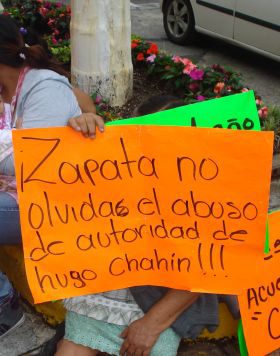 ¡Zapata no
olvidas el abuso
de autoridad de
hugo chahín!!!